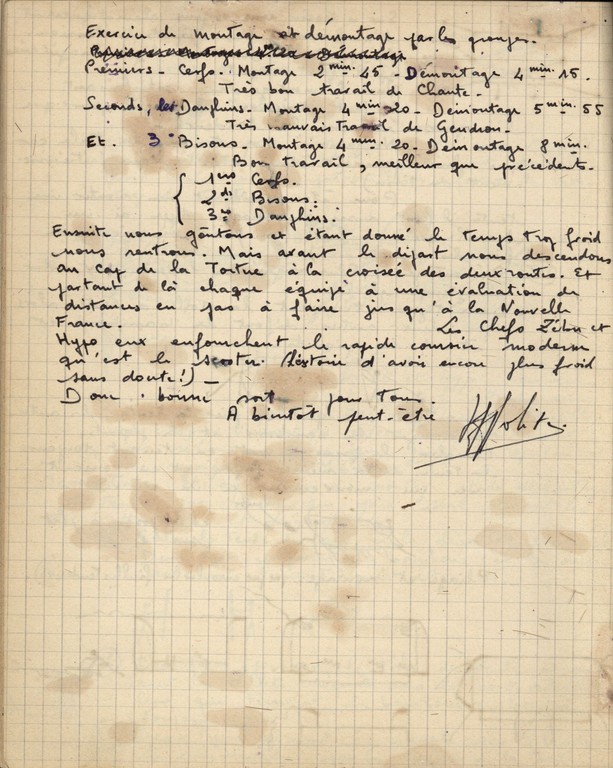 Exercice de montage et démontage par les groupes.
Premiers - Cerfs. Montage 2 min. 45 - Démontage 4 min. 15.
Très bon travail de Chante.
Seconds, les Dauphins - Montage 4 min 20 - Démontage 5 min. 55
Très mauvais travail de Gendron.
Et. 3° Bisons - Montage 4 min. 20 - Démontage 8 min.
Bon travail, meilleur que précédents.
1ers Cerfs.
2ds Bisons.
3es Dauphins.
Ensuite nous goûtons et étant donné le temps trop froid
nous rentrons. Mais avant le dépast nous descendons
au cap de la Tortue à la croisée des deux routes. Et
partant de là chaque équipe à une évaluation de
distances en pas à faire jusqu'à la Nouvelle
France. Les Chefs Zébu et
Hypo eux enfourchent le rapide coursier moderne
qu'est le scooter. (Histoire d'avoir encore plus froid
sans doute!) -
Donc bonne soit pour tous.
A bientôt peut-être